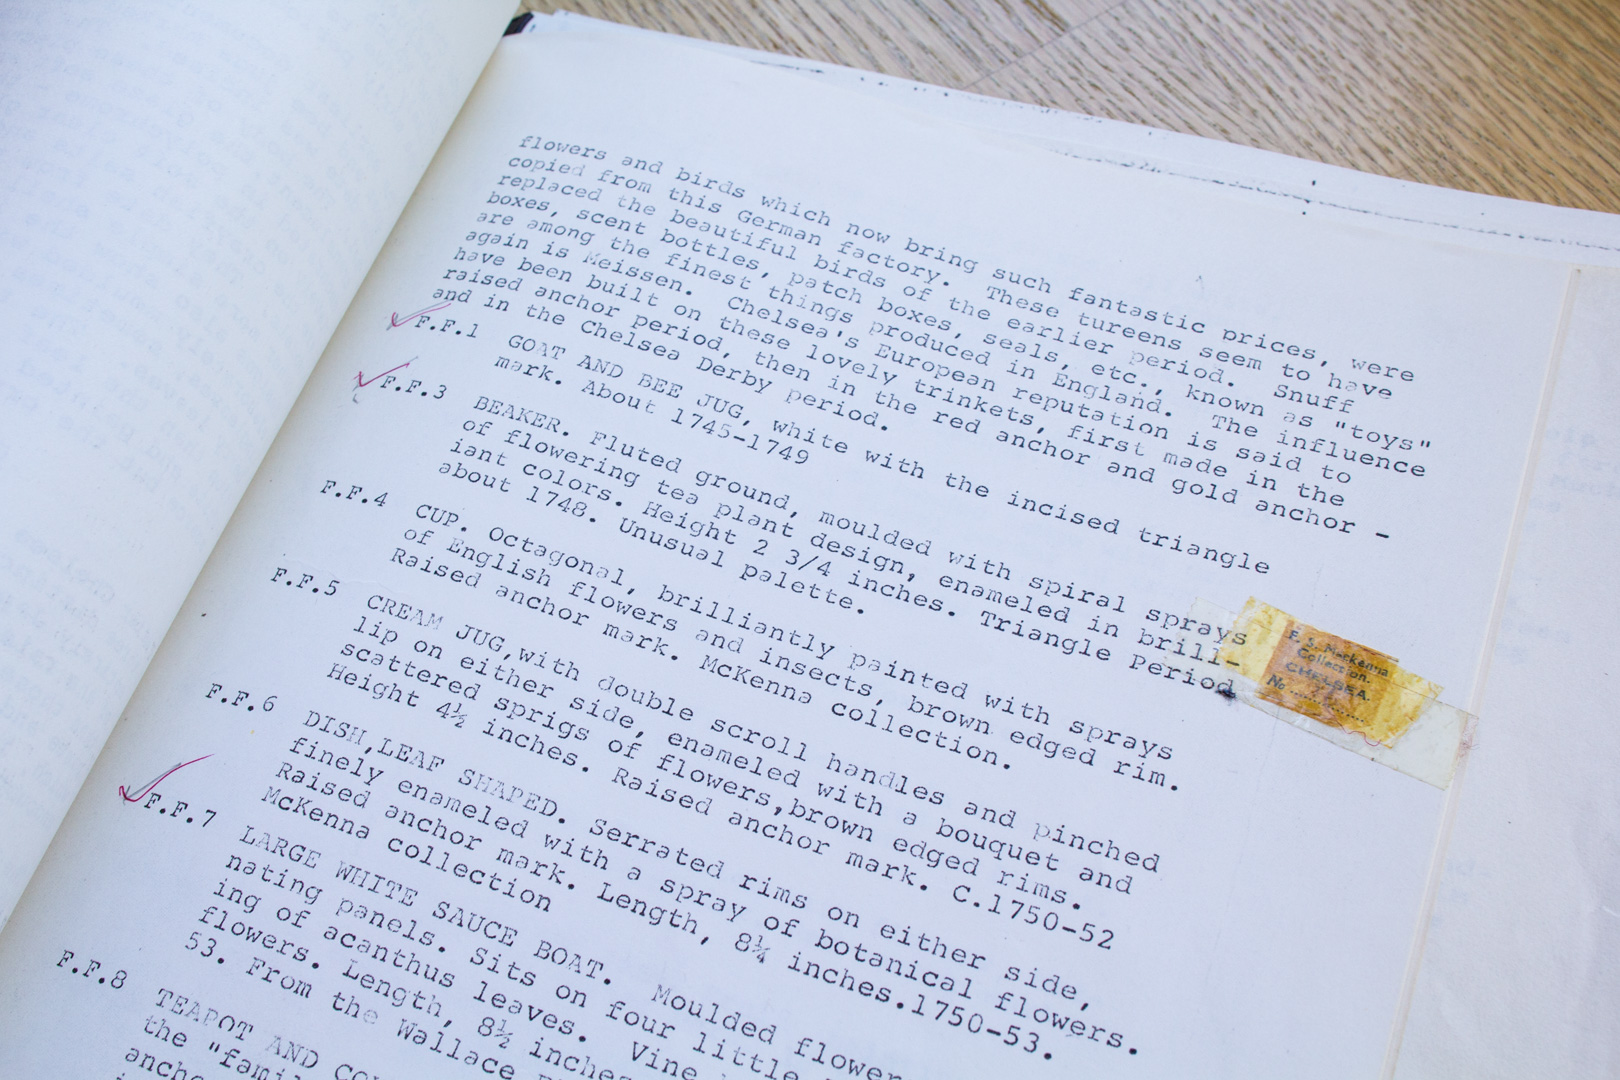 flowers and birds which now bring such fantastic prices, were
copied from this German factory. These tureens seem to have
replaced the beautiful birds of the earlier period. Snuff
boxes, scent bottles, patch boxes, seals, etc., known as "toys"
are among the finest things produced in England. The influence
again is Meissen. Chelsea's European reputation is said to
have been built on these lovely trinkets, first made in the
raised anchor period, then in the red anchor and gold anchor -
and in the Chelsea Derby period.
F.F.1 GOAT AND BEE JUG, white with the incised triangle
mark. About 1745-1749
F.F.3 BEAKER. Fluted ground, moulded with spiral sprays
of flowering tea plant design, enameled in brill-
iant colors. Height 2 3/4 inches. Triangle Period
about 1748. Unusual palette.
F.F.4 CUP. Octagonal, brilliantly painted with sprays
of English flowers and insects, brown edged rim.
Raised anchor mark. McKenna collection.
F. S. Mackenna
Collection.
CHELSEA.
No ............
F.F.5 CREAM JUG,with double scroll handles and pinched
lip on either side, enameled with a bouquet and
scattered sprigs of flowers,brown edged rims.
Height 4½ inches. Raised anchor mark. C.1750-52
F.F.6 DISH,LEAF SHAPED. Serrated rims on either side,
finely enameled with a spray of botanical flowers.
Raised anchor mark. Length, 8¼ inches.1750-53.
McKenna collection
F.F.7 LARGE WHITE SAUCE BOAT. Moulded flower
nating panels. Sits on four little
ing of acanthus leaves. Vine
flowers. Length, 8½ inches
53. From the Wallace
F.F.8 TEAPOT AND
the